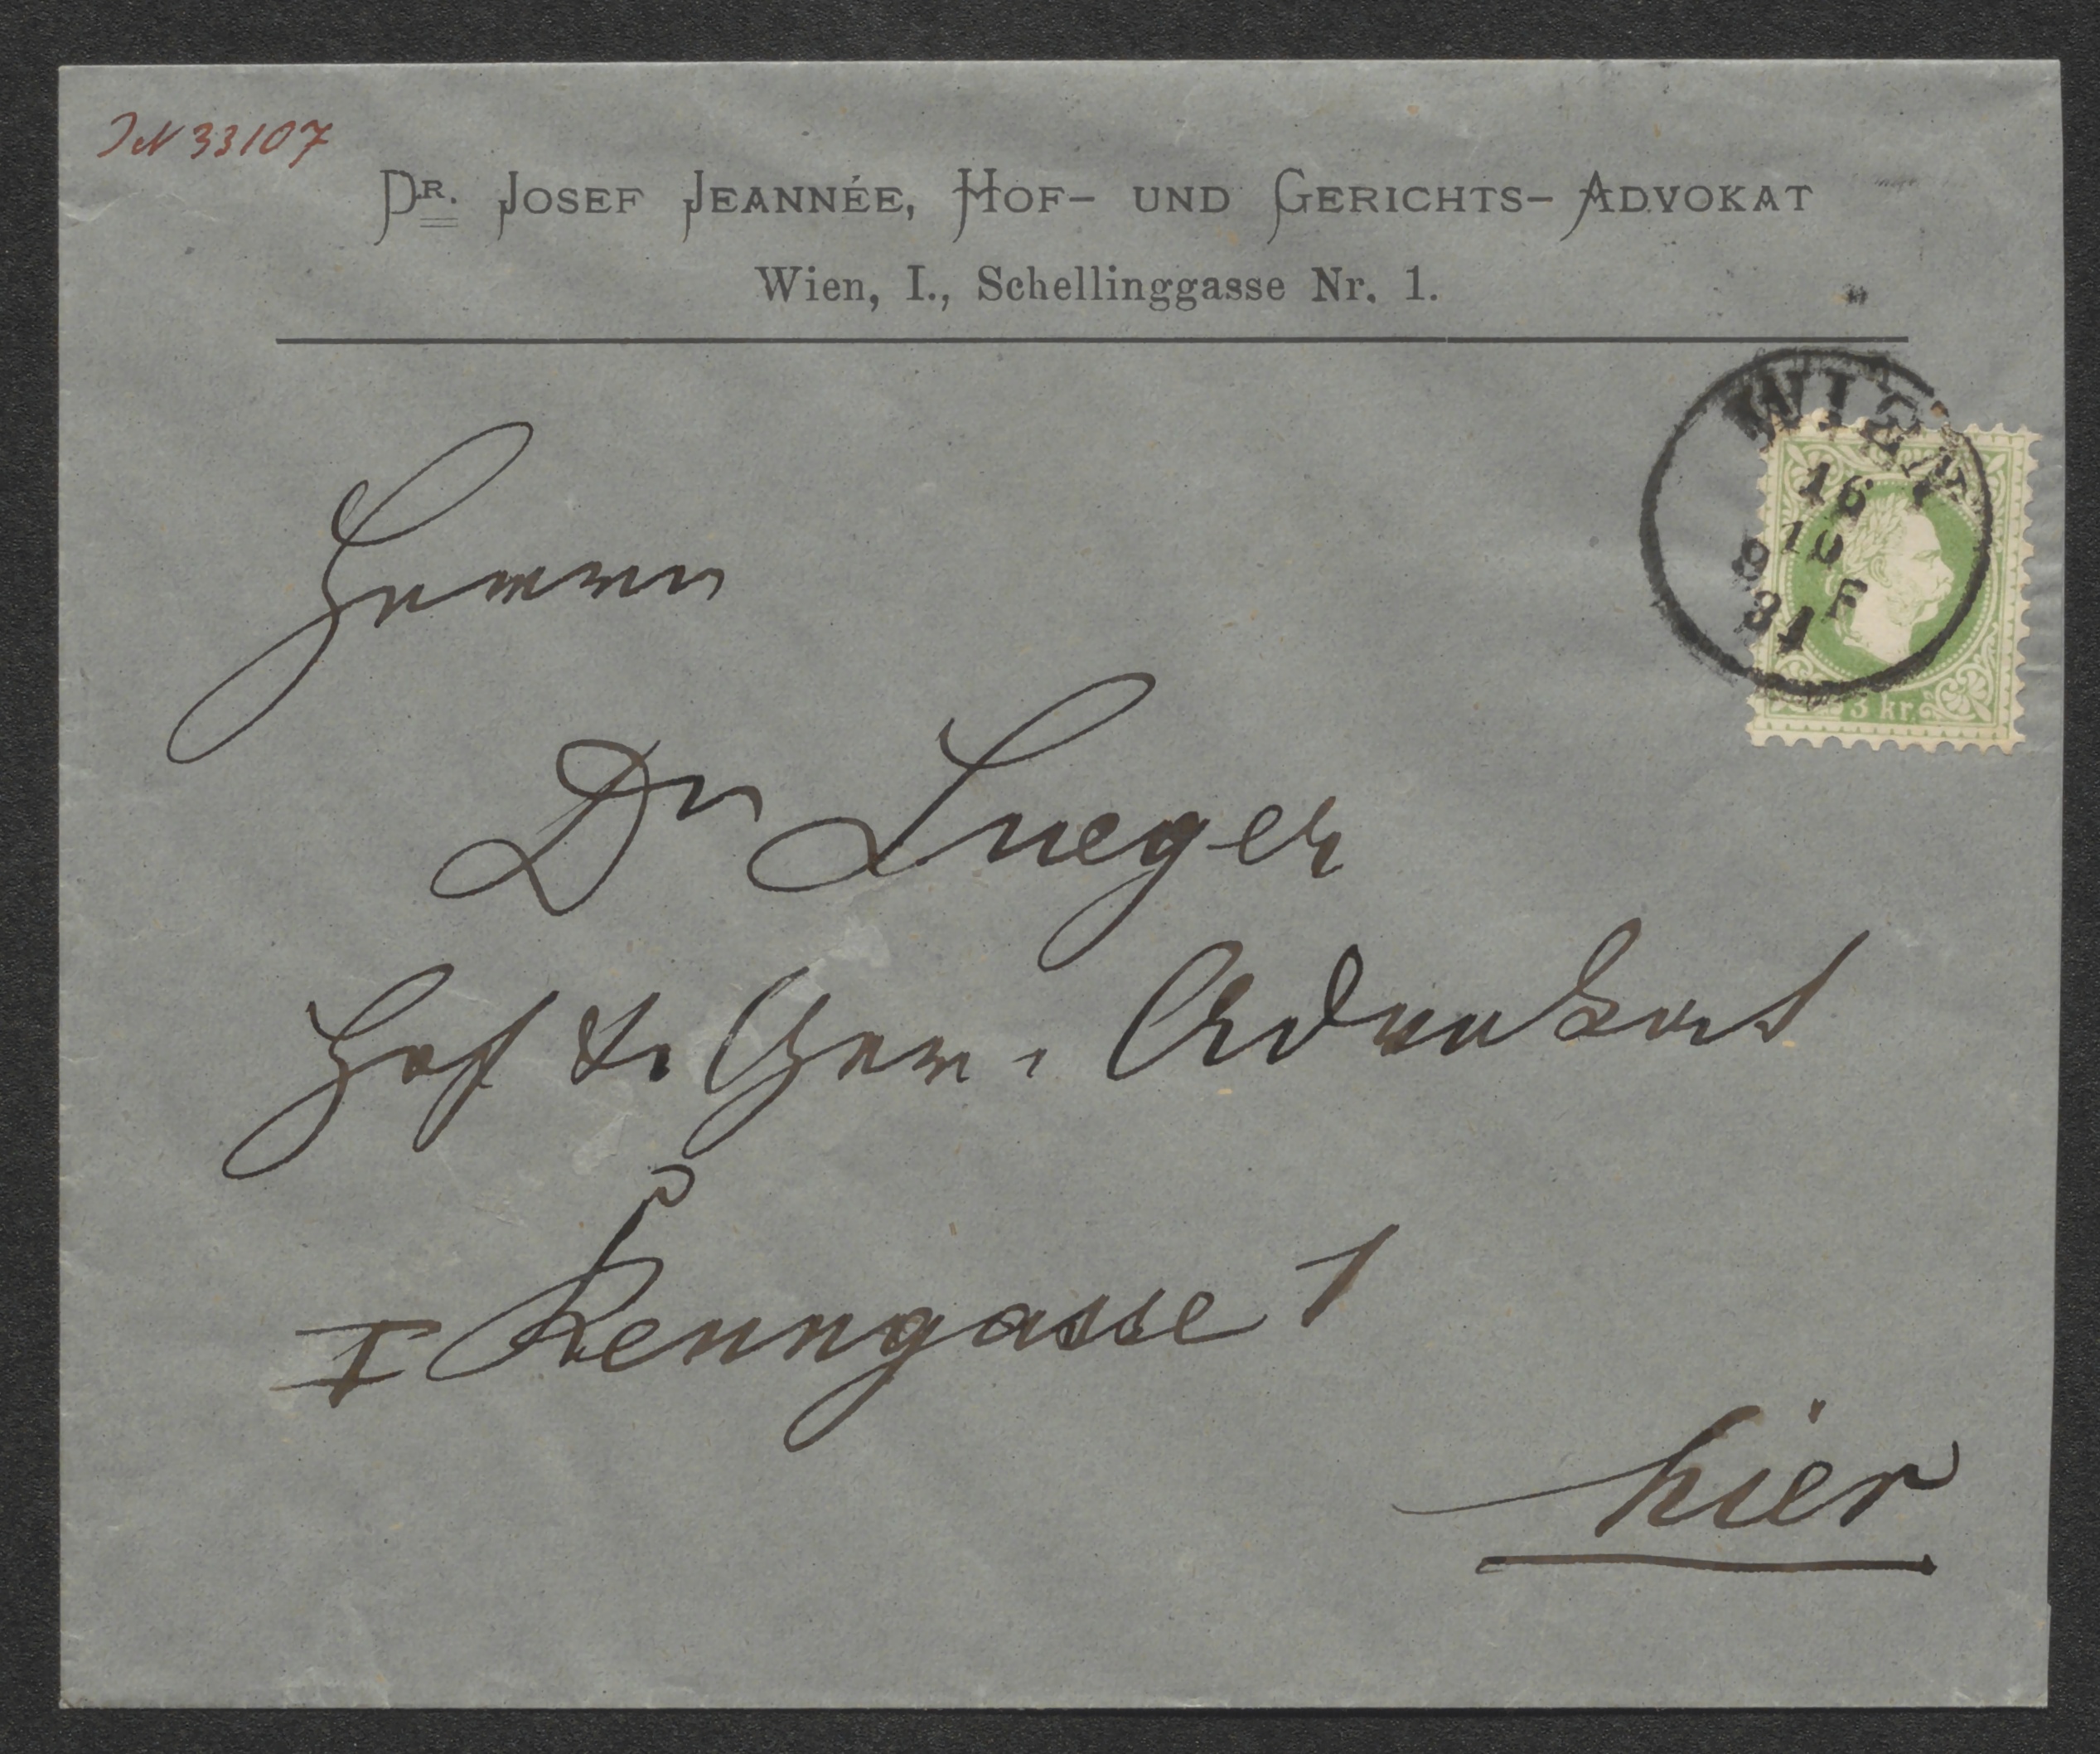 JN 33107
Dr. Josef Jeannée, Hof- und Gerichts-Advokat
Wien, I., Schellinggasse Nr. 1.
WIEN
16
10
8 F
81
3 kr.
Herrn
Dr Lueger
Hof & Ger. Advokat
I Renngasse 1
hier